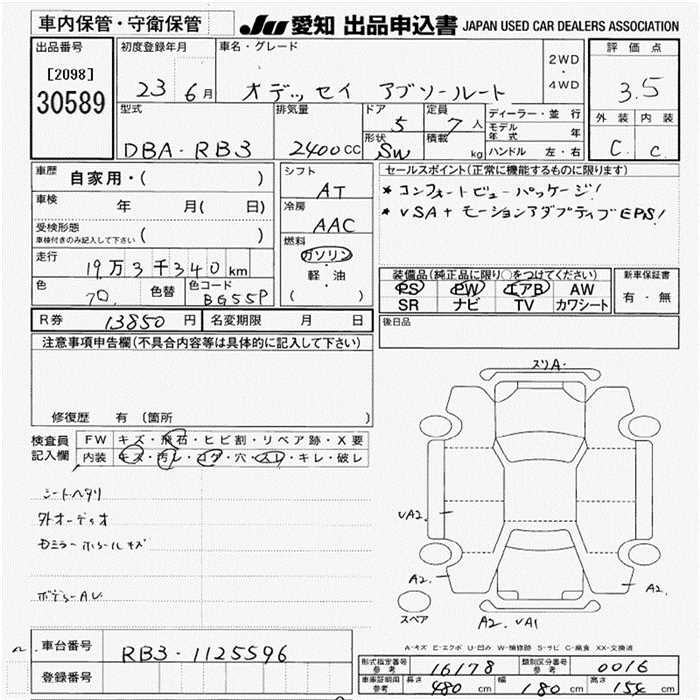 車内保管・守衛保管
JU 愛知 出品申込書 JAPAN USED CAR DEALERS ASSOCIATION
出品番号
[2098]
30589
初度登録年月
23 6月
車名・グレード
オデッセイ アブソールート
2WD
・
4WD
評価点
3.5
外装 内装
C C
型式
DBA-RB3
排気量
2400CC
ドア
5
定員
7人
形状
SW
積載
kg
ディーラー・並行
モデル年式 年
ハンドル 左・右
車歴
自家用・( )
車検
年 月( 日)
受検形態
車検付きのみ記入して下さい ( )
走行
19万3千340km
色
色替
色コード
BG55P
シフト
AT
冷房
AAC
燃料
ガソリン
・
軽・油
( )
セールスポイント(正常に機能するものに限ります)
* コンフォートビューパッケージ!
* VSA+モーションアダプティブEPS!
装備品(純正品に限り○をつけてください)
PS PW エアB AW
SR ナビ TV カワシート
新車保証書
有・無
R券 13850円 名変期限 月 日
後日品
注意事項申告欄(不具合内容等は具体的に記入して下さい)
修復歴 有 〔箇所 〕
検査員
記入欄
FW キズ・飛石・ヒビ割・リペア跡・X要
内装 キズ・汚レ・コゲ・穴・スレ・キレ・破レ
シートヘタリ
外オーディオ
Dミラーホールキズ
スリA.
VA2.
A2.
A2.
A2. VA1
スペア
A-キズ E-エクボ U-凹み W-補修跡 S-サビ C-腐食 XX-交換済
車台番号
RB3-1125596
登録番号
形式指定番号
参考
16178
類別区分番号
参考
0016
車庫証明用
参考
長さ 480cm
幅 180cm
高さ 154cm